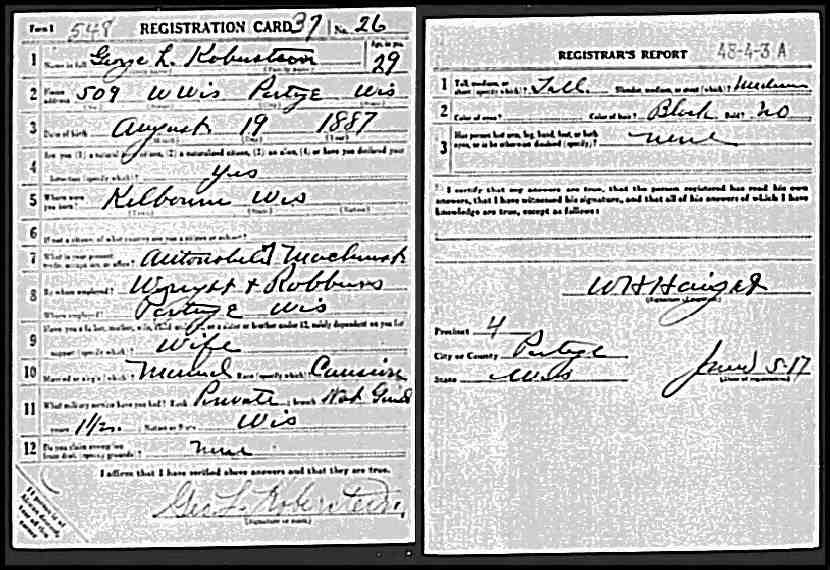 Form 1 548 REGISTRATION CARD 37 No. 26
1 Name in full George L. Robertson Age, in yrs. 29
(Given name) (Family name)
2 Home address 509 W Wis Portage Wis
(No.) (Street) (City) (State)
3 Date of birth August 19 1887
(Month) (Day) (Year)
4 Are you (1) a natural-born citizen, (2) a naturalized citizen, (3) an alien, (4) or have you declared your
intention (specify which)? yes
5 Where were you born? Kilbourn Wis
(Town) (State) (Nation)
6 If not a citizen, of what country are you a citizen or subject?
7 What is your present trade, occupation, or office? Automobile Machinist
8 By whom employed? Wright + Robbins
Where employed? Portage Wis
9 Have you a father, mother, wife, child under 12, or a sister or brother under 12, solely dependent on you for
support (specify which)? Wife
10 Married or single (which)? Married Race (specify which)?
11 What military service have you had? Rank Private; branch Nat Guard
years 1 1/2; Nation or State Wis
12 Do you claim exemption from draft (specify grounds)? none
I affirm that I have verified above answers and that they are true.
Geo L. Robertson
(Signature or mark)
REGISTRAR'S REPORT 48-4-3 A
1 Tall, medium, or short (specify which)? Tall Slender, medium, or stout (which)? Medium
2 Color of eyes? Color of hair? Black Bald? no
3 Has person lost arm, leg, hand, foot, or both
eyes, or is he otherwise disabled (specify)? none
I certify that my answers are true, that the person registered has read his own
answers, that I have witnessed his signature, and that all of his answers of which I have
knowledge are true, except as follows:
W H Haight
(Signature of registrar)
Precinct 4
City or County Portage
State Wis June 5-17
(Date of registration)